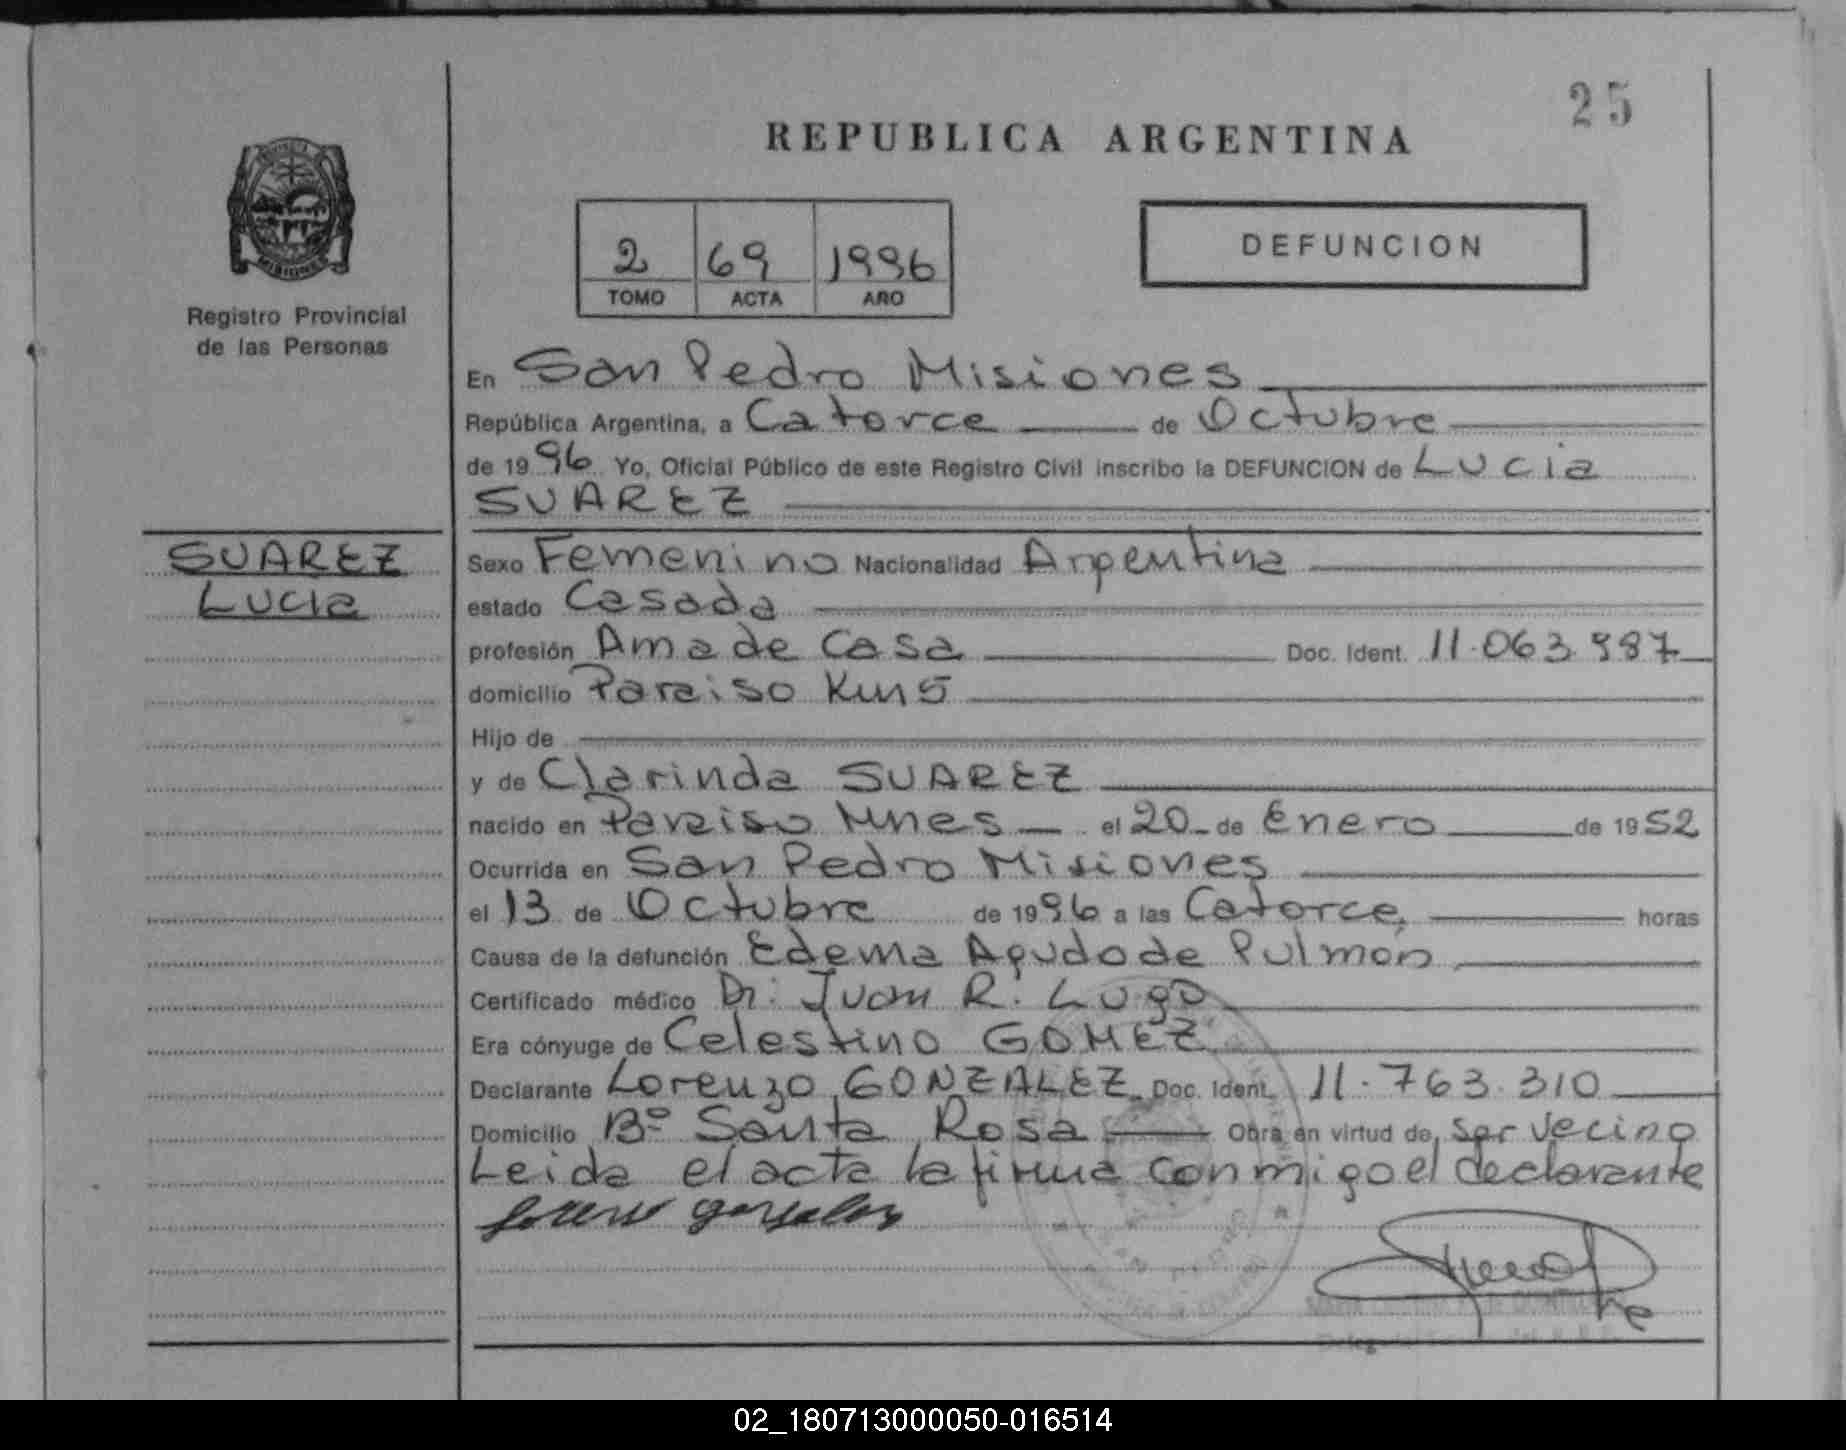 25
REPUBLICA ARGENTINA
2 69 1996
TOMO ACTA AÑO
DEFUNCION
MISIONES
Registro Provincial
de las Personas
En San Pedro Misiones
República Argentina, a Catorce de Octubre
de 1996 Yo, Oficial Público de este Registro Civil inscribo la DEFUNCION de Lucia
SUAREZ
SUAREZ
Lucia
Sexo Femenino Nacionalidad Argentina
estado Casada
profesión Ama de Casa Doc. Ident. 11.063.987
domicilio Paraiso Km 5
Hijo de
y de Clarinda SUAREZ
nacido en Paraiso Mnes el 20 de Enero de 1952
Ocurrida en San Pedro Misiones
el 13 de Octubre de 1996 a las Catorce, horas
Causa de la defunción Edema Agudo de Pulmón
Certificado médico Dr: Juan R. Lugo
Era cónyuge de Celestino GOMEZ
Declarante Lorenzo GONZALEZ Doc. Ident. 11.763.310
Domicilio Bº Santa Rosa Obra en virtud de, ser vecino
Leida el acta la firma conmigo el declarante
Lorenzo gonzalez
02_180713000050-016514